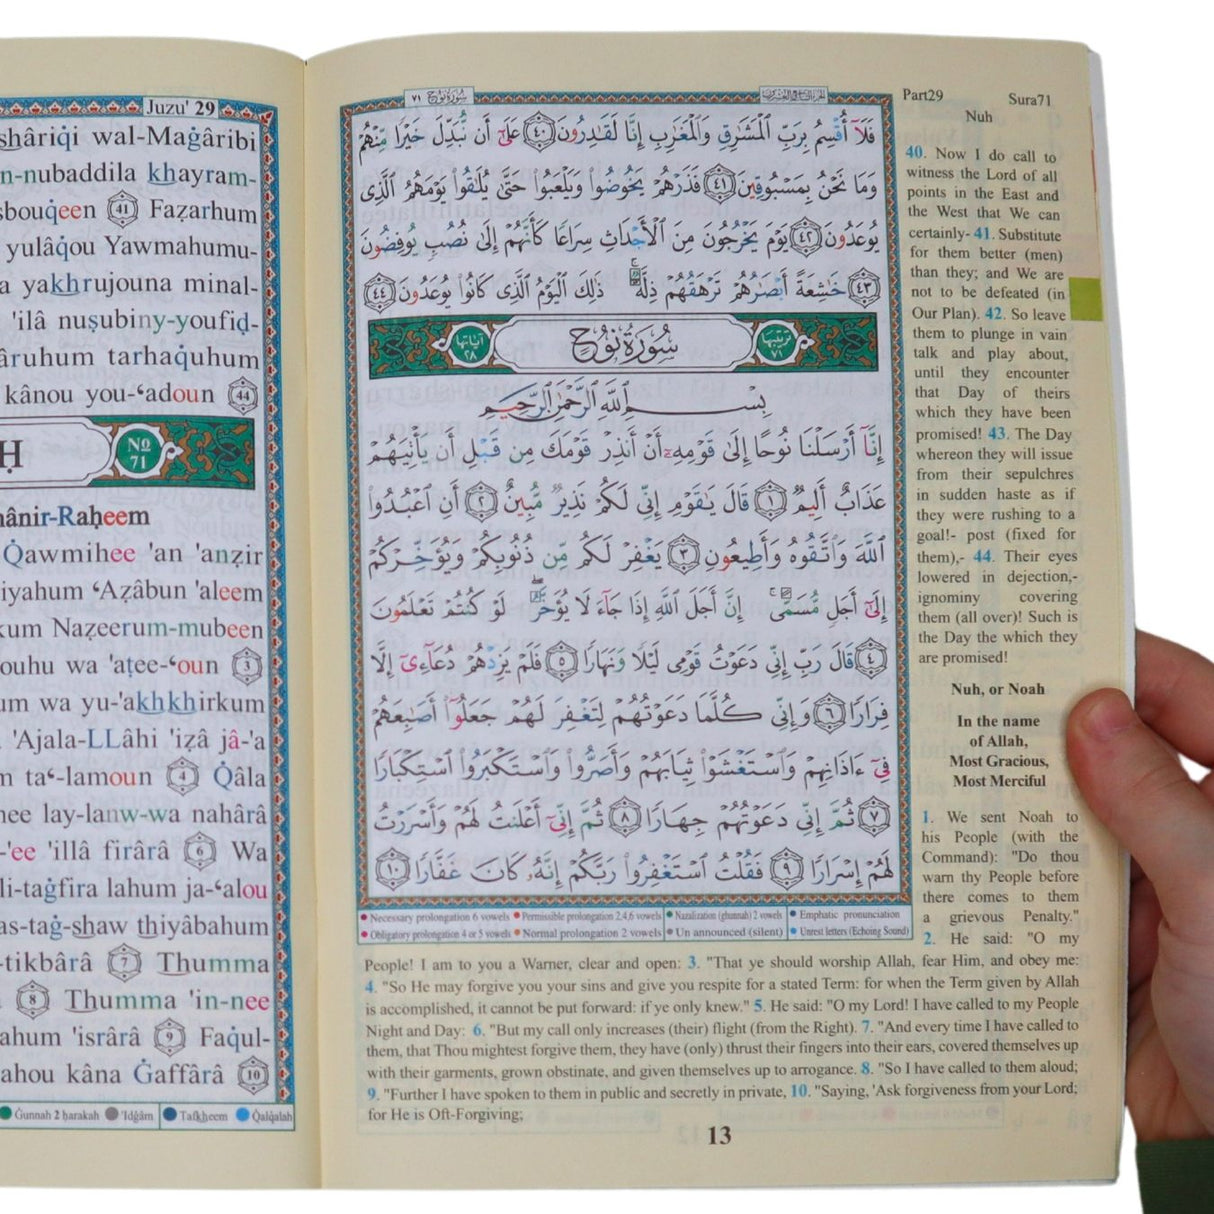 Juzu' 29
shâriqi wal-Maġâribi
n-nubaddila khayram-
sbouqeen 41 Fazarhum
yulâqou Yawmahumu-
a yakhrujouna minal-
'ilâ nuṣubiny-youfiḍ-
âruhum tarhaquhum
kânou you-ʻadoun 44
Ḥ
No 71
nânir-Raḥeem
Qawmihee 'an 'anzir
iyahum ʻAzâbun 'aleem
kum Nazeerum-mubeen
ouhu wa 'aṭee-ʻoun 3
um wa yu-'akhkhirkum
'Ajala-LLâhi 'izâ jâ-'a
m taʻ-lamoun 4 Qâla
nee lay-lanw-wa nahârâ
-'ee 'illâ firârâ 6 Wa
li-taġfira lahum ja-ʻalou
as-taġ-shaw thiyâbahum
-tikbârâ 7 Thumma
8 Thumma 'in-nee
ahum 'isrârâ 9 Faqul-
ahou kâna Ġaffârâ 10
Ġunnah 2 ḥarakah 'Idġâm Tafkheem Qalqalah
سُورَةُ نُوحٍ ٧١
فَلَآ أُقْسِمُ بِرَبِّ الْمَشَٰرِقِ وَالْمَغَٰرِبِ إِنَّا لَقَٰدِرُونَ ٤٠ عَلَىٰٓ أَن نُّبَدِّلَ خَيْرًا مِّنْهُمْ
وَمَا نَحْنُ بِمَسْبُوقِينَ ٤١ فَذَرْهُمْ يَخُوضُوا۟ وَيَلْعَبُوا۟ حَتَّىٰ يُلَٰقُوا۟ يَوْمَهُمُ الَّذِى
يُوعَدُونَ ٤٢ يَوْمَ يَخْرُجُونَ مِنَ الْأَجْدَاثِ سِرَاعًا كَأَنَّهُمْ إِلَىٰ نُصُبٍ يُوفِضُونَ
٤٣ خَٰشِعَةً أَبْصَٰرُهُمْ تَرْهَقُهُمْ ذِلَّةٌ ۚ ذَٰلِكَ الْيَوْمُ الَّذِى كَانُوا۟ يُوعَدُونَ ٤٤
ترتيبها ٧١ سُورَةُ نُوحٍ آياتها ٢٨
بِسْمِ اللَّهِ الرَّحْمَٰنِ الرَّحِيمِ
إِنَّآ أَرْسَلْنَا نُوحًا إِلَىٰ قَوْمِهِۦٓ أَنْ أَنذِرْ قَوْمَكَ مِن قَبْلِ أَن يَأْتِيَهُمْ
عَذَابٌ أَلِيمٌ ١ قَالَ يَٰقَوْمِ إِنِّى لَكُمْ نَذِيرٌ مُّبِينٌ ٢ أَنِ اعْبُدُوا۟
اللَّهَ وَاتَّقُوهُ وَأَطِيعُونِ ٣ يَغْفِرْ لَكُم مِّن ذُنُوبِكُمْ وَيُؤَخِّرْكُمْ
إِلَىٰٓ أَجَلٍ مُّسَمًّى ۚ إِنَّ أَجَلَ اللَّهِ إِذَا جَآءَ لَا يُؤَخَّرُ ۖ لَوْ كُنتُمْ تَعْلَمُونَ
٤ قَالَ رَبِّ إِنِّى دَعَوْتُ قَوْمِى لَيْلًا وَنَهَارًا ٥ فَلَمْ يَزِدْهُمْ دُعَآءِىٓ إِلَّا
فِرَارًا ٦ وَإِنِّى كُلَّمَا دَعَوْتُهُمْ لِتَغْفِرَ لَهُمْ جَعَلُوٓا۟ أَصَٰبِعَهُمْ
فِىٓ ءَاذَانِهِمْ وَاسْتَغْشَوْا۟ ثِيَابَهُمْ وَأَصَرُّوا۟ وَاسْتَكْبَرُوا۟ اسْتِكْبَارًا
٧ ثُمَّ إِنِّى دَعَوْتُهُمْ جِهَارًا ٨ ثُمَّ إِنِّىٓ أَعْلَنتُ لَهُمْ وَأَسْرَرْتُ
لَهُمْ إِسْرَارًا ٩ فَقُلْتُ اسْتَغْفِرُوا۟ رَبَّكُمْ إِنَّهُۥ كَانَ غَفَّارًا ١٠
Necessary prolongation 6 vowels Permissible prolongation 2,4,6 vowels Nazalization (ghunnah) 2 vowels Emphatic pronunciation
Obligatory prolongation 4 or 5 vowels Normal prolongation 2 vowels Un announced (silent) Unrest letters (Echoing Sound)
Part29 Sura71
Nuh
40. Now I do call to
witness the Lord of all
points in the East and
the West that We can
certainly- 41. Substitute
for them better (men)
than they; and We are
not to be defeated (in
Our Plan). 42. So leave
them to plunge in vain
talk and play about,
until they encounter
that Day of theirs
which they have been
promised! 43. The Day
whereon they will issue
from their sepulchres
in sudden haste as if
they were rushing to a
goal!- post (fixed for
them),- 44. Their eyes
lowered in dejection,-
ignominy covering
them (all over)! Such is
the Day the which they
are promised!
Nuh, or Noah
In the name
of Allah,
Most Gracious,
Most Merciful
1. We sent Noah to
his People (with the
Command): "Do thou
warn thy People before
there comes to them
a grievous Penalty."
2. He said: "O my
People! I am to you a Warner, clear and open: 3. "That ye should worship Allah, fear Him, and obey me:
4. "So He may forgive you your sins and give you respite for a stated Term: for when the Term given by Allah
is accomplished, it cannot be put forward: if ye only knew." 5. He said: "O my Lord! I have called to my People
Night and Day: 6. "But my call only increases (their) flight (from the Right). 7. "And every time I have called to
them, that Thou mightest forgive them, they have (only) thrust their fingers into their ears, covered themselves up
with their garments, grown obstinate, and given themselves up to arrogance. 8. "So I have called to them aloud;
9. "Further I have spoken to them in public and secretly in private, 10. "Saying, 'Ask forgiveness from your Lord;
for He is Oft-Forgiving;
13